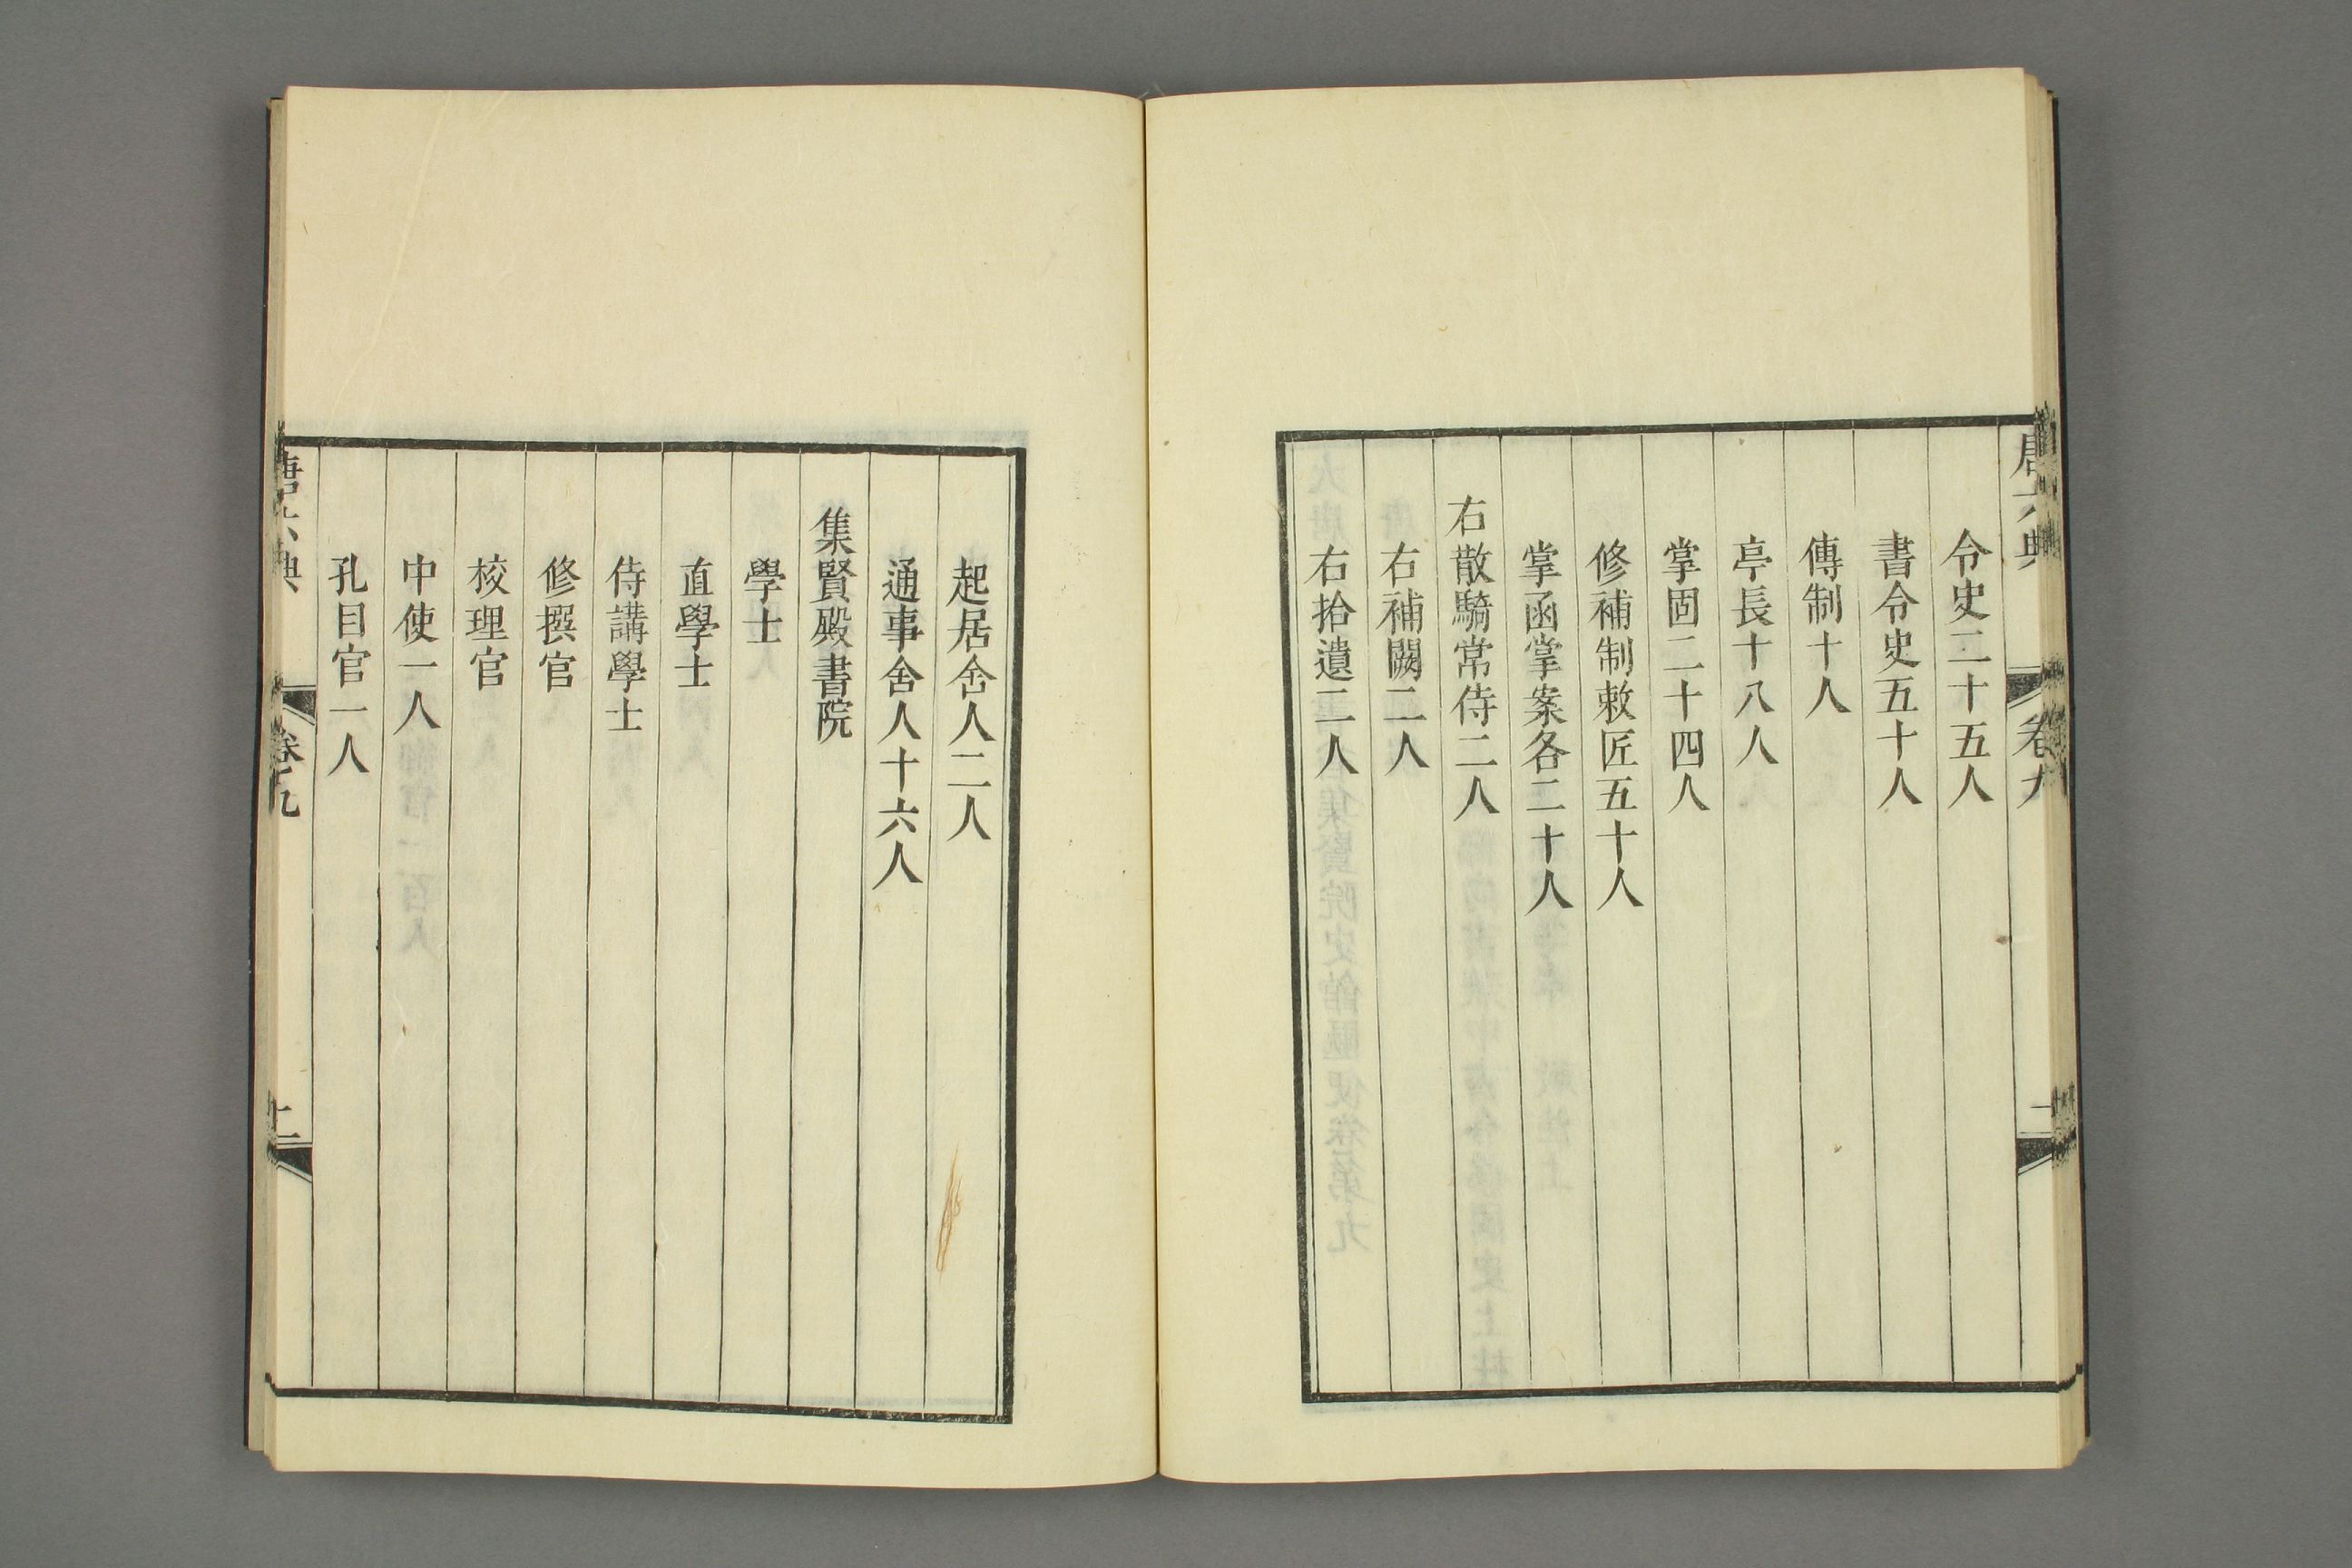 令史二十五人
書令史五十人
傳制十人
亭長十八人
掌固二十四人
修補制敕匠五十人
掌函掌案各二十人
右散騎常侍二人
右補闕二人
右拾遺二人
起居舍人二人
通事舍人十六人
集賢殿書院
學士
直學士
侍講學士
修撰官
校理官
中使一人
孔目官一人
唐六典
卷九